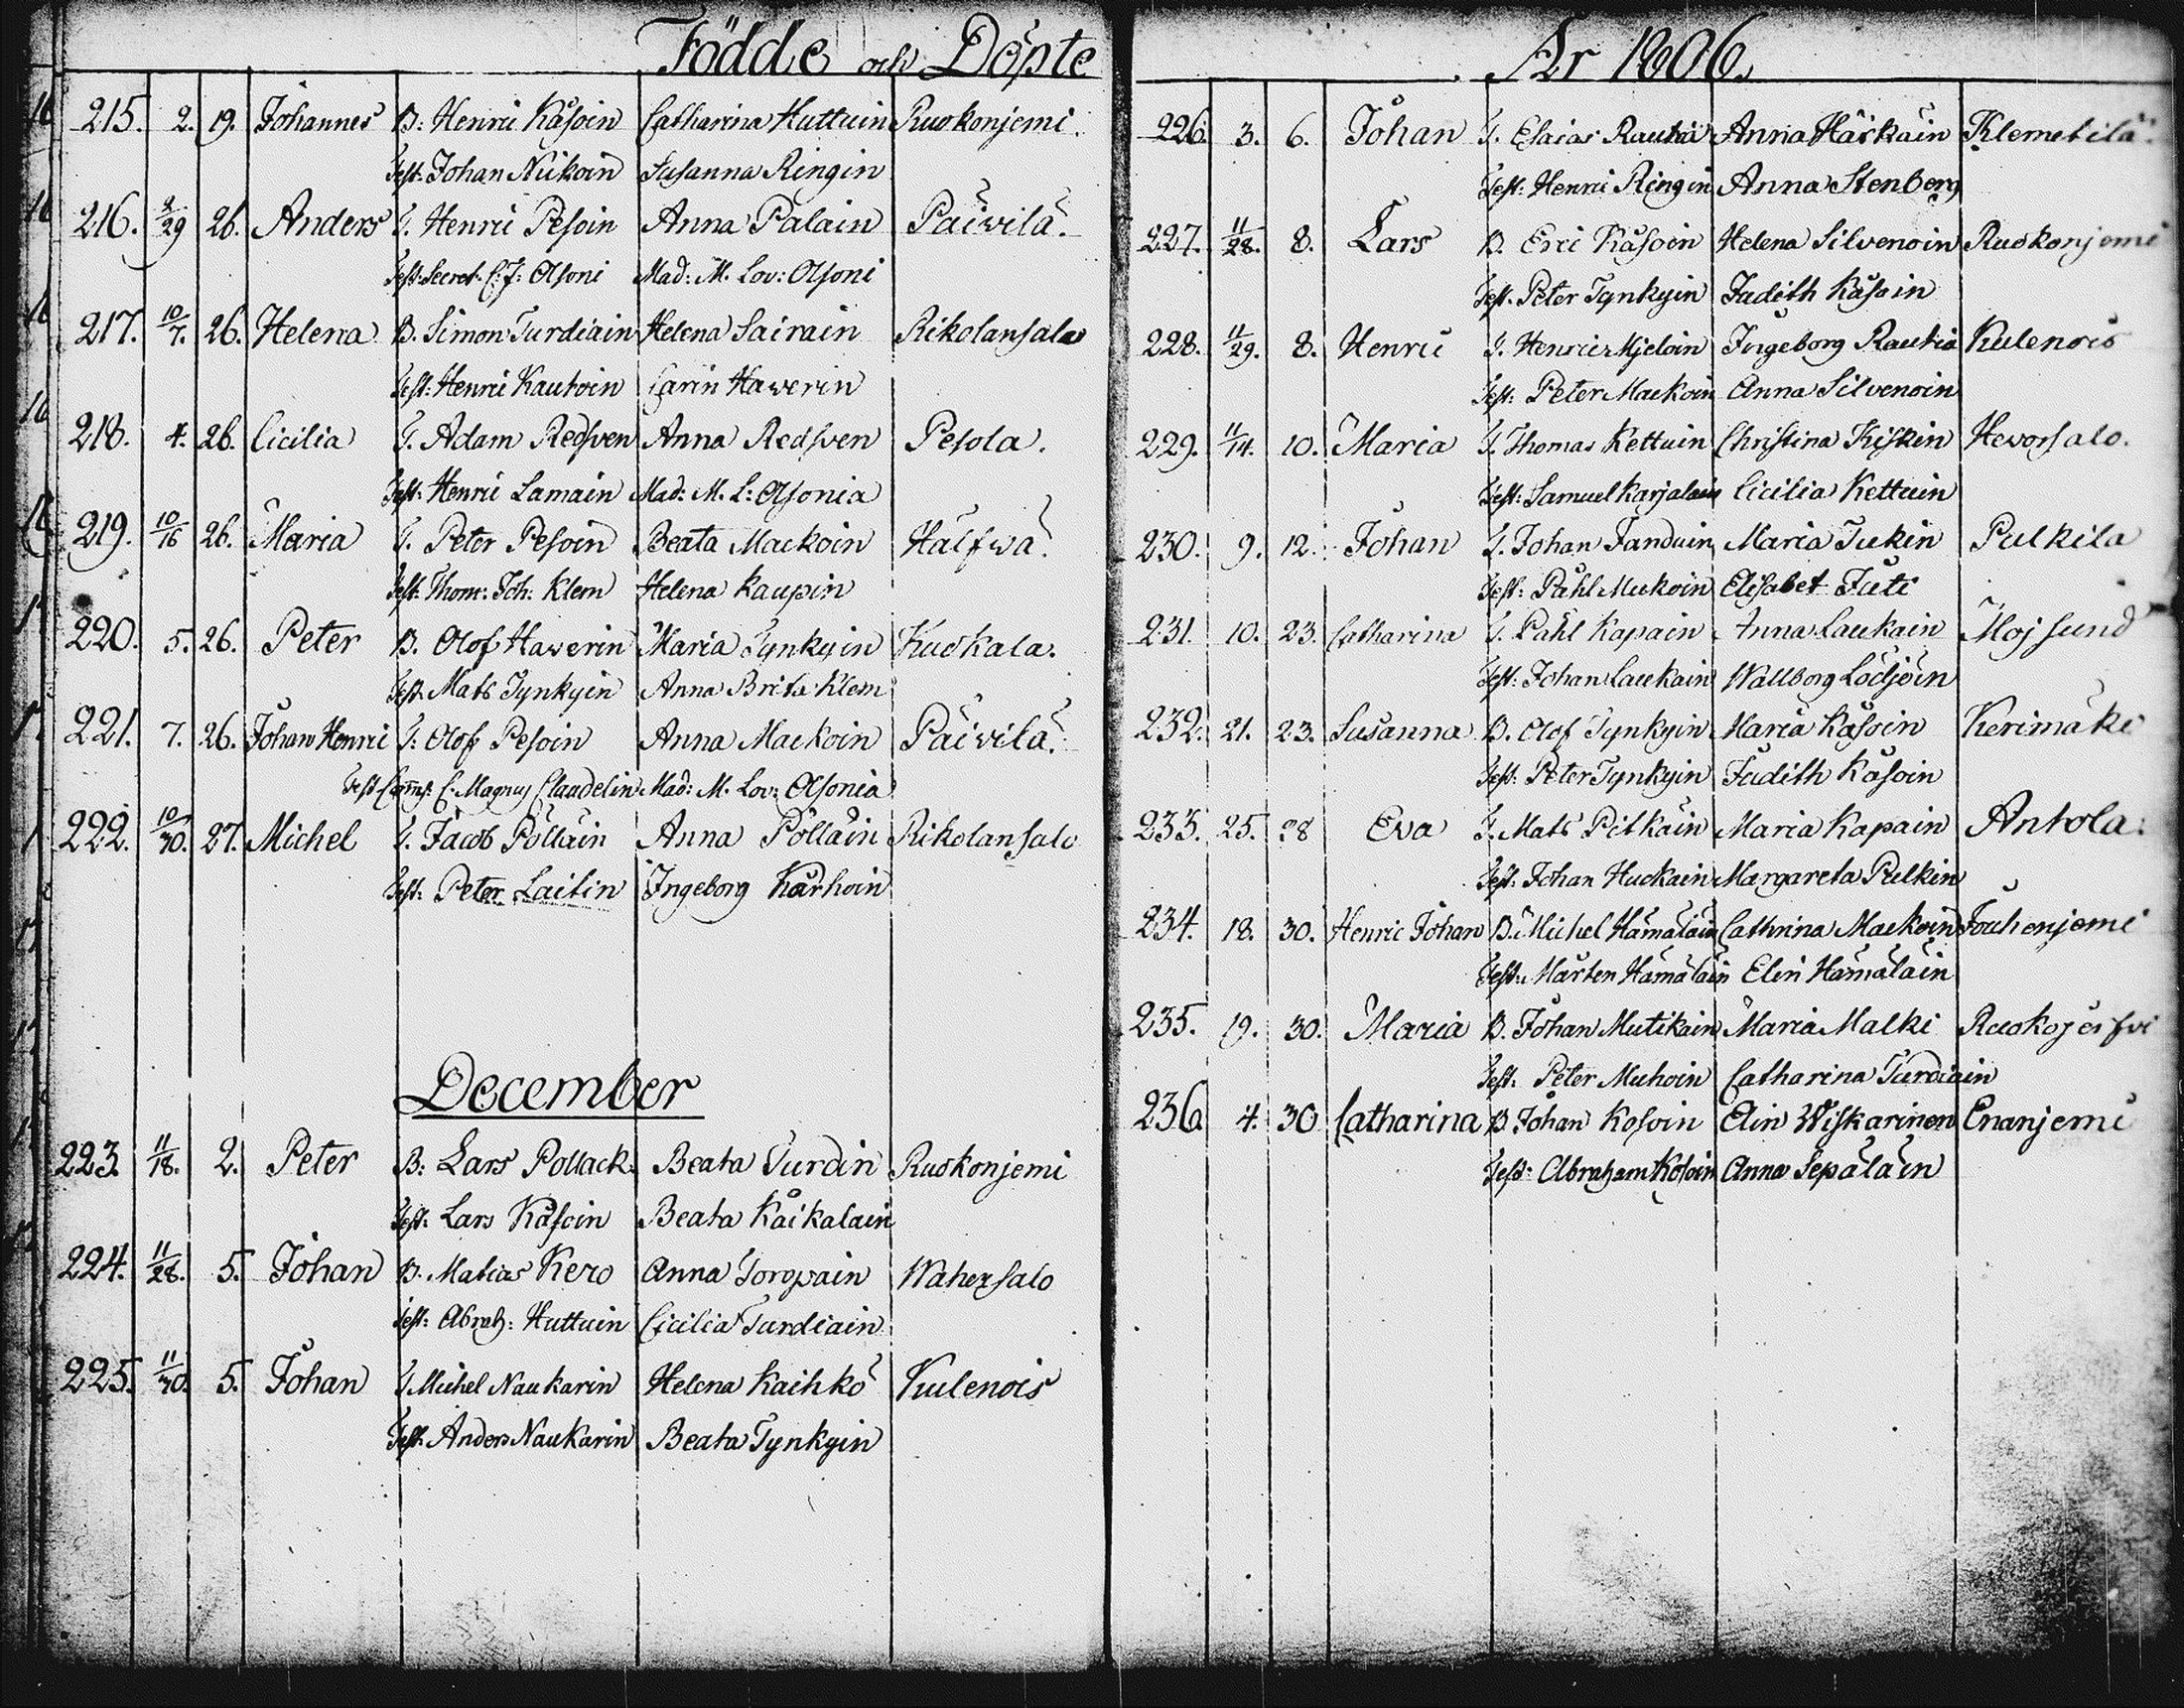 Födde och Döpte
215. 2. 19. Johannes B: Henric Kåsoin Catharina Huttuin Ruokonjemi.
Test: Johan Nickoin Susanna Ringin
216. 29 26. Anders T. Henric Pesoin Anna Palain Päivilä.
Test: Secret. C: J: Olsoni Mad: M. Lov: Olsoni
217. 10/7. 26. Helena B. Simon Turdiain Helena Sairain Rikolansalo
Test: Henric Kautoin Carin Haverin
218. 4. 26. Cicilia T. Adam Redsven Anna Redsven Pesola.
Test: Henric Lamain Mad: M. L: Olsonia
219. 10/16 26. Maria T. Peter Pesoin Beata Mackoin Hälfwä.
Test: Thom: Joh: Klem Helena Kaupin
220. 5. 26. Peter B. Olof Haverin Maria Tynkyin Kuokala.
Test: Mats Tynkyin Anna Brita Klem
221. 7. 26. Johan Henric T: Olof Pesoin Anna Mackoin Päivilä.
Test C. Magnus Claudelin Mad: M. Lov: Olsonia
222. 10/30. 27. Michel T. Jacob Pöllain Anna Pöllain Rikolansalo
Test: Peter Laitin Ingeborg Kärhoin
December
223 11/18. 2. Peter B: Lars Pollack Beata Turdin Ruokonjemi
Test: Lars Kåsoin Beata Kaikalain
224. 11/28. 5. Johan B. Matias Kero Anna Toropain Wahersalo
Test: Abrah: Huttuin Cicilia Turdiain
225. 11/30. 5. Johan T. Michel Naukarin Helena Kaihko Kulenois
Test: Anders Naukarin Beata Tynkyin
År 1806.
226. 3. 6. Johan T. Esaias Rautia Anna Härkäin Klemetilä.
Test: Henric Ringin Anna Stenberg
227. 11/28. 8. Lars B. Eric Kåsoin Helena Silvenoin Ruokonjemi
Test. Peter Tynkyin Judith Kåsoin
228. 11/29. 8. Henric T. Henric Mjeloin Ingeborg Rautia Kulenois
Test: Peter Mackoin Anna Silvenoin
229. 11/14. 10. Maria T. Thomas Kettuin Christina Kiskin Hevorsalo.
Test: Samuel Karjalain Cicilia Kettuin
230. 9. 12. Johan T. Johan Janduin Maria Tukin Pulkila
Test: Påhl Muckoin Elisabet Juti
231. 10. 23. Catharina T. Påhl Kapain Anna Laukain Mojsund
Test: Johan Laukain Wallborg Lödjöin
232. 21. 23. Susanna B. Olof Tynkyin Maria Kåsoin Kerimäki
Test: Peter Tynkyin Judith Kåsoin
233. 25. 28 Eva T. Mats Pitkäin Maria Kapain Antola.
Test: Johan Huckain Margareta Pulkin
234. 18. 30. Henric Johan B. Michel Hämäläin Cathrina Mackoin Jouhenjemi
Test: Mårten Hämäläin Elin Hämäläin
235. 19. 30. Maria B. Johan Mutikain Maria Malki Ruokojerfvi
Test: Peter Muhoin Catharina Turdiain
236 4. 30 Catharina B Johan Kosoin Elin Wiskarinen Enanjemi
Test: Abraham Kosoin Anna Sepäläin